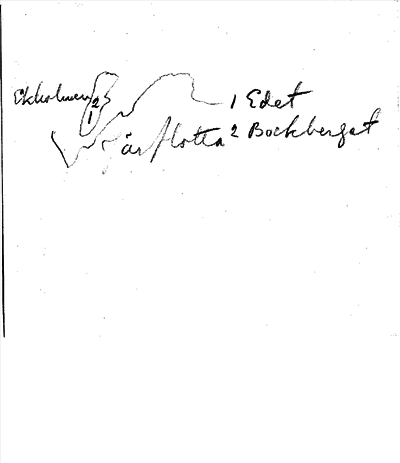 Ekholmen
2
1
Järflotta
1 Edet
2 Bockberget